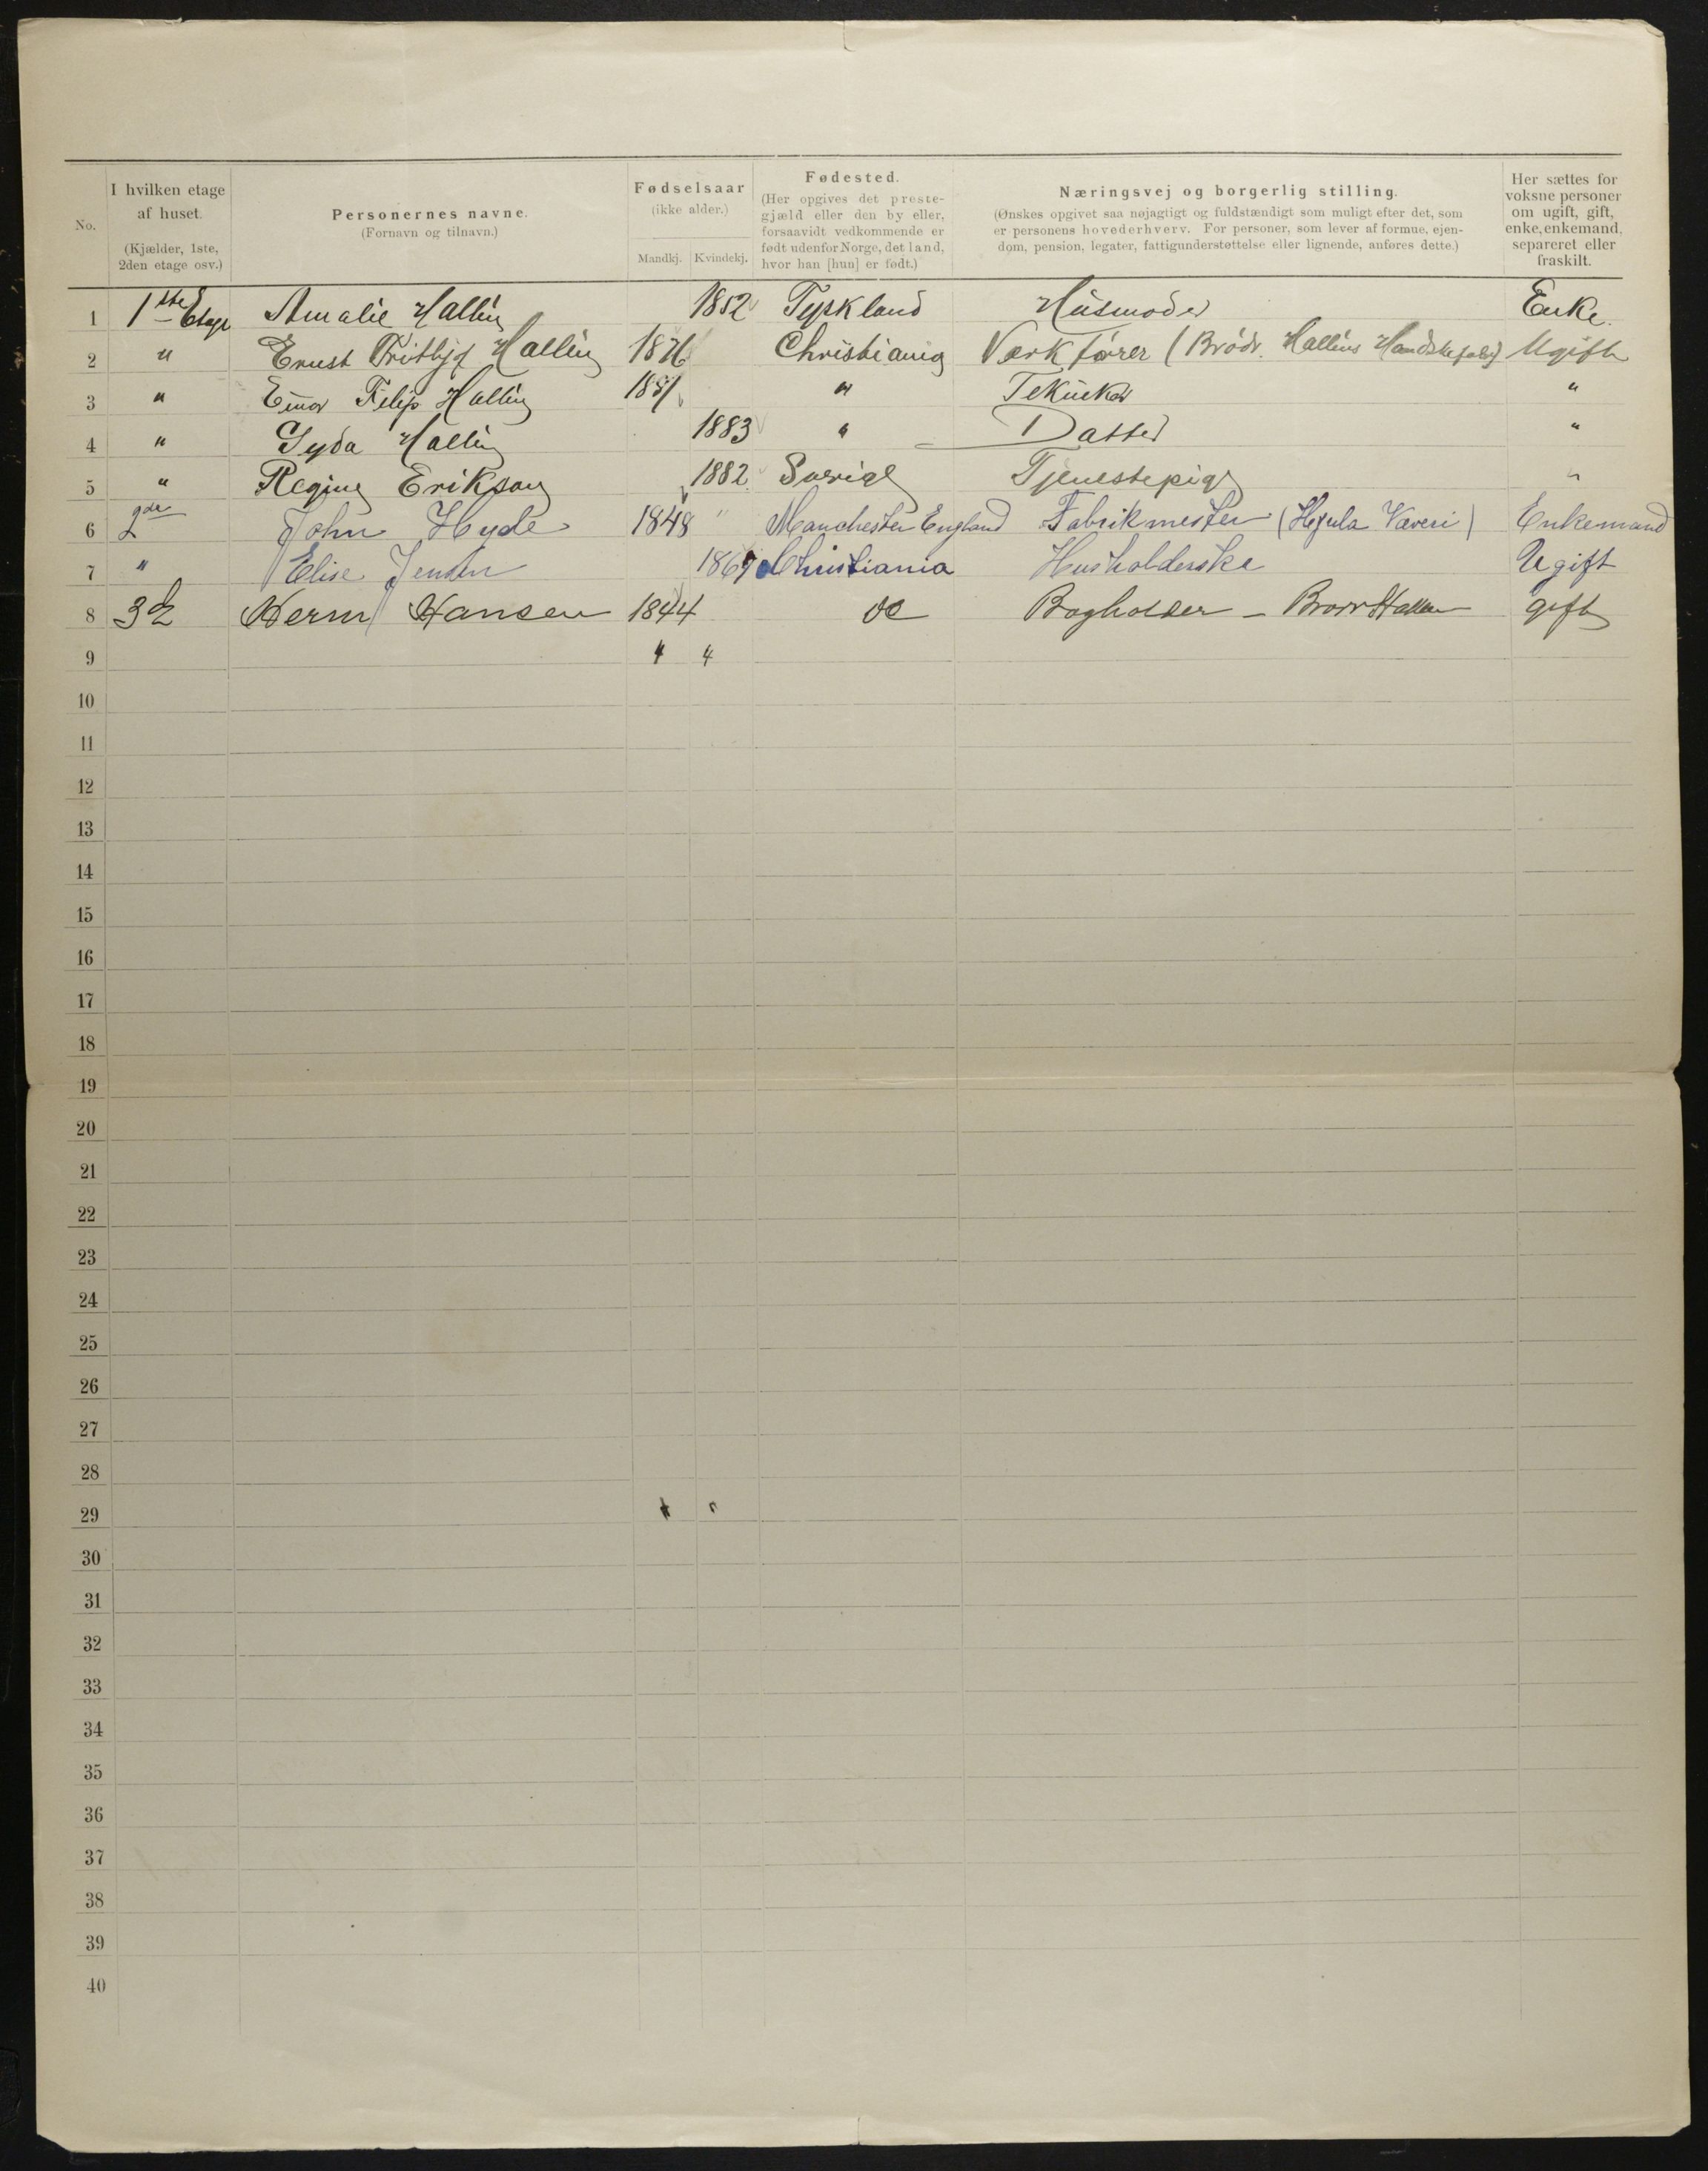 No.
I hvilken etage af huset. (Kjælder, 1ste, 2den etage osv.)
Personernes navne. (Fornavn og tilnavn.)
Fødselsaar (ikke alder.) Mandkj. Kvindekj.
Fødested. (Her opgives det prestegjæld eller den by eller, forsaavidt vedkommende er født udenfor Norge, det land, hvor han [hun] er født.)
Næringsvej og borgerlig stilling. (Ønskes opgivet saa nøjagtigt og fuldstændigt som muligt efter det, som er personens hovederhverv. For personer, som lever af formue, ejendom, pension, legater, fattigunderstøttelse eller lignende, anføres dette.)
Her sættes for voksne personer om ugift, gift, enke, enkemand, separeret eller fraskilt.
1 1ste Etage Amalie Hallin 1852 Tyskland Husmoder Enke.
2 " Ernst Fritbjof Hallin 1876 Christiania Værkfører (Brødr. Hallins Handskefabr) Ugift
3 " Einar Filip Hallin 1881 " Tekniker "
4 " Syda Hallin 1883 " Datter "
5 " Regina Erikson 1882 Sverige Tjenestepige "
6 2den John Hyde 1848 " Manchester England Fabrikmester (Hjula Væveri) Enkemand
7 " Elise Jensen 1867 Christiania Husholderske Ugift
8 3 E Herm Hansen 1844 do Bogholder - gift
9 4 4
10
11
12
13
14
15
16
17
18
19
20
21
22
23
24
25
26
27
28
29
30
31
32
33
34
35
36
37
38
39
40